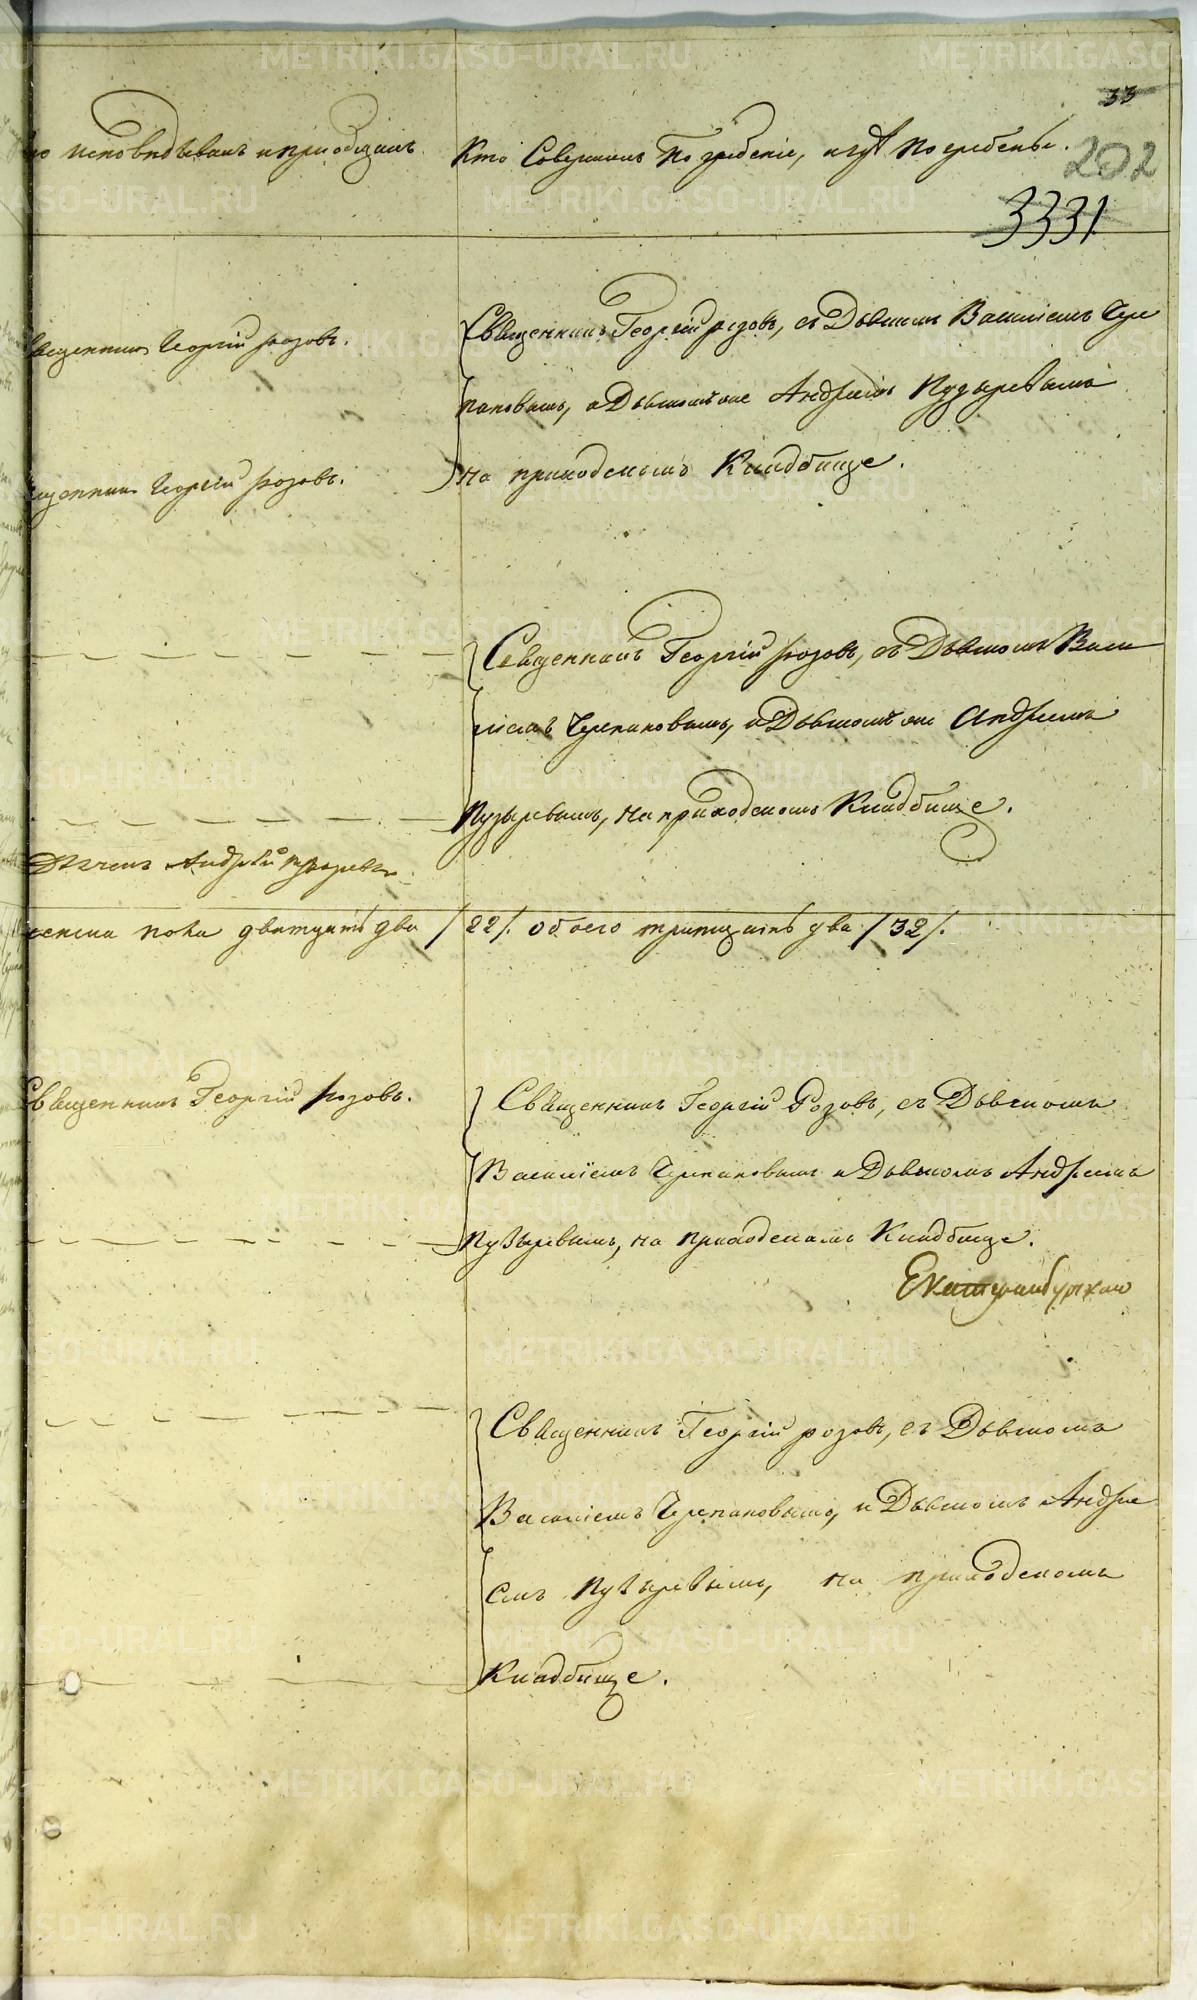 33
202
3331
кто исповѣдывалъ и пріобщалъ. Кто Совершалъ Погребеніе, и гдѣ погребены.
Священникъ Георгій розовъ.
Священникъ Георгій розовъ, съ Дьячкомъ Василіемъ Чере
пановымъ, и Андреемъ Пузыревымъ
Священникъ Георгій розовъ.
на приходскомъ Кладбище.
Священникъ Георгій розовъ, съ Дьячкомъ Васи
ліемъ Черепановымъ, и Андреемъ
Пузыревымъ, на приходскомъ Кладбище.
Дьячекъ Андрей Пузыревъ.
женска пола дватцать два /22/. обоего тритцать два /32/.
Священникъ Георгій розовъ.
Священникъ Георгій Розовъ, съ Дьячкомъ
Василіемъ Черепановымъ и Дьячкомъ Андреемъ
Пузыревымъ, на приходскомъ Кладбище.
Екатеринбургской
Священникъ Георгій розовъ, съ Дьячкомъ
Василіемъ Черепановымъ, и Дьячкомъ Андре
емъ Пузыревымъ, на приходскомъ
Кладбище.
METRIKI.GASO-URAL.RU